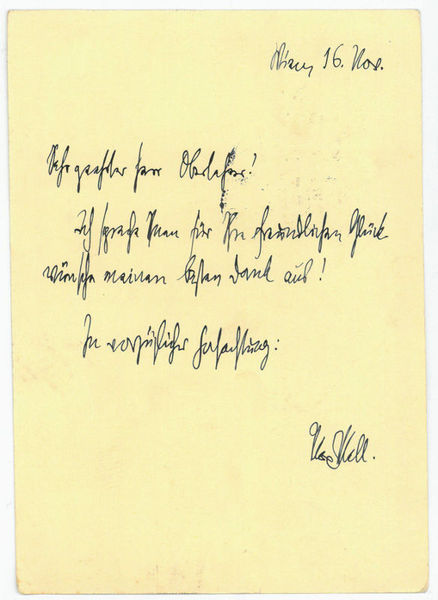 Wien, 16. Nov.
Sehr geehrter Herr Oberlehrer!
Ich spreche Ihnen für Ihre freundlichen Glück-
wünsche meinen besten Dank aus!
In vorzüglicher Hochachtung: